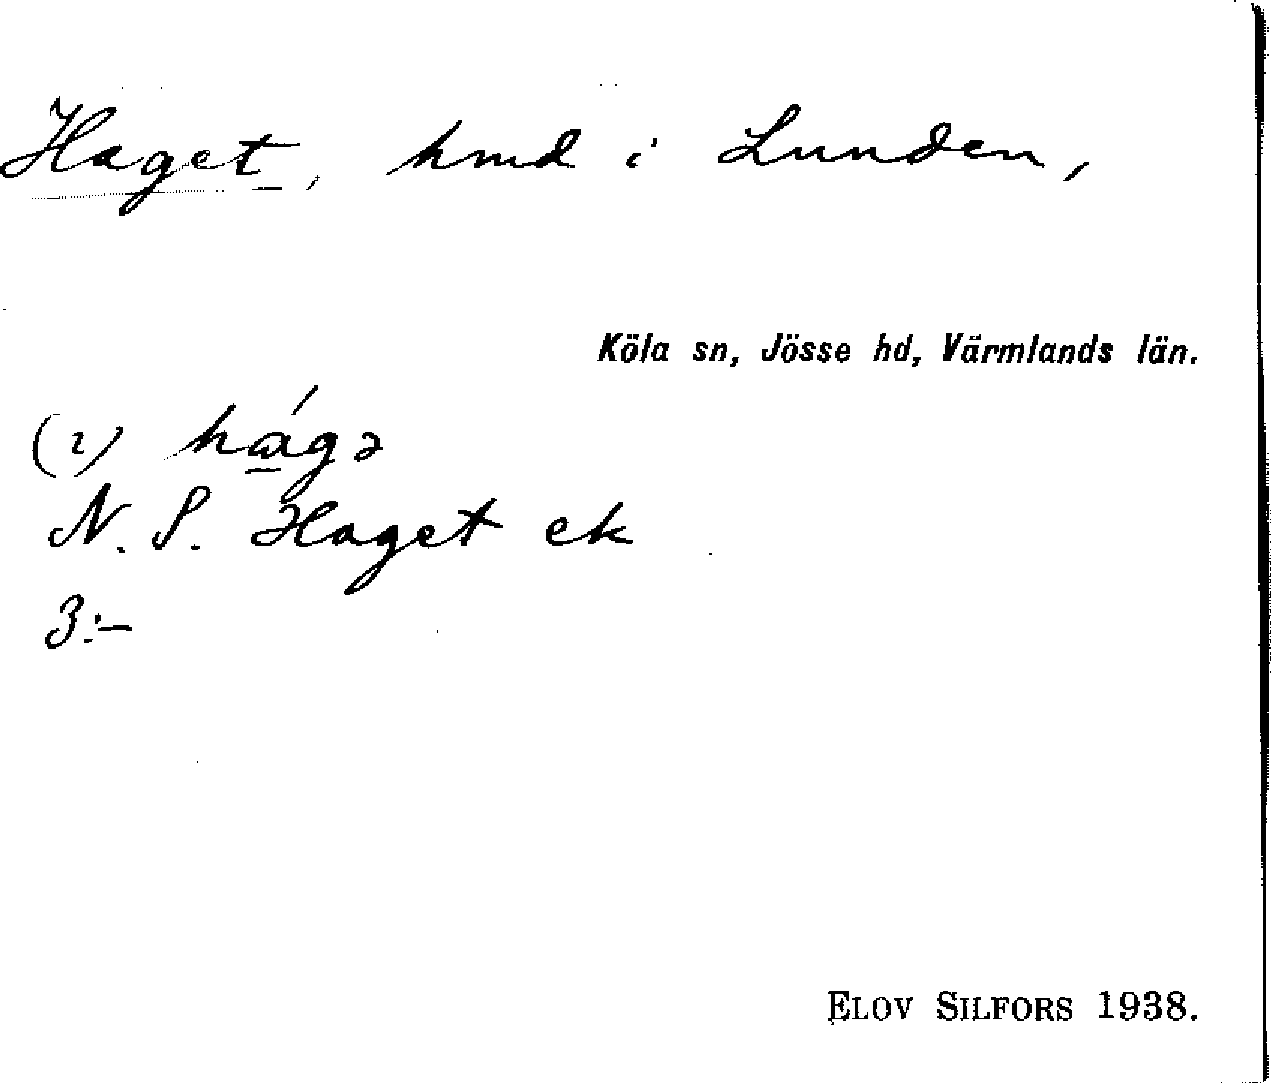 Haget, hmd i Lunden,
Köla sn, Jösse hd, Värmlands län.
(2) há̱gə
N. S. Haget ek
3:-
ELOV SILFORS 1938.